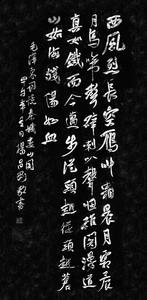 西風烈長空雁叫霜晨月霜晨
月馬蹄聲碎喇叭聲咽雄関漫道
真如鐵而今邁步從頭越從頭越蒼
山如海殘陽如血
毛澤東詞憶秦娥婁山関
敬書